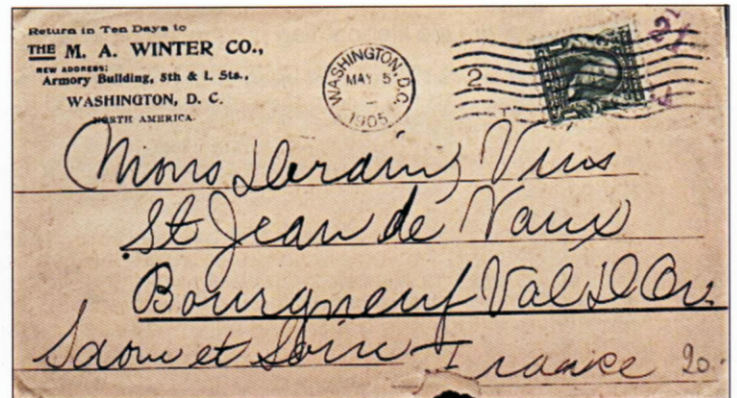 Return in Ten Days to
THE M. A. WINTER CO.,
NEW ADDRESS:
Armory Building, 5th & L Sts.,
WASHINGTON, D. C.
NORTH AMERICA.
WASHINGTON, D.C.
MAY 5
1905
2
Mons Derain Vins
St Jean de Vaux
Bourgneuf Val D Or.
Saone et Loire France 20